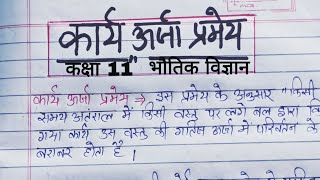 कार्य ऊर्जा प्रमेय
कक्षा 11" भौतिक विज्ञान
कार्य ऊर्जा प्रमेय ⇒ इस प्रमेय के अनुसार "किसी
समय अंतराल में किसी वस्तु पर लगे बल द्वारा कि
गया कार्य उस वस्तु की गतिज ऊर्जा में परिवर्तन के
बराबर होता है।